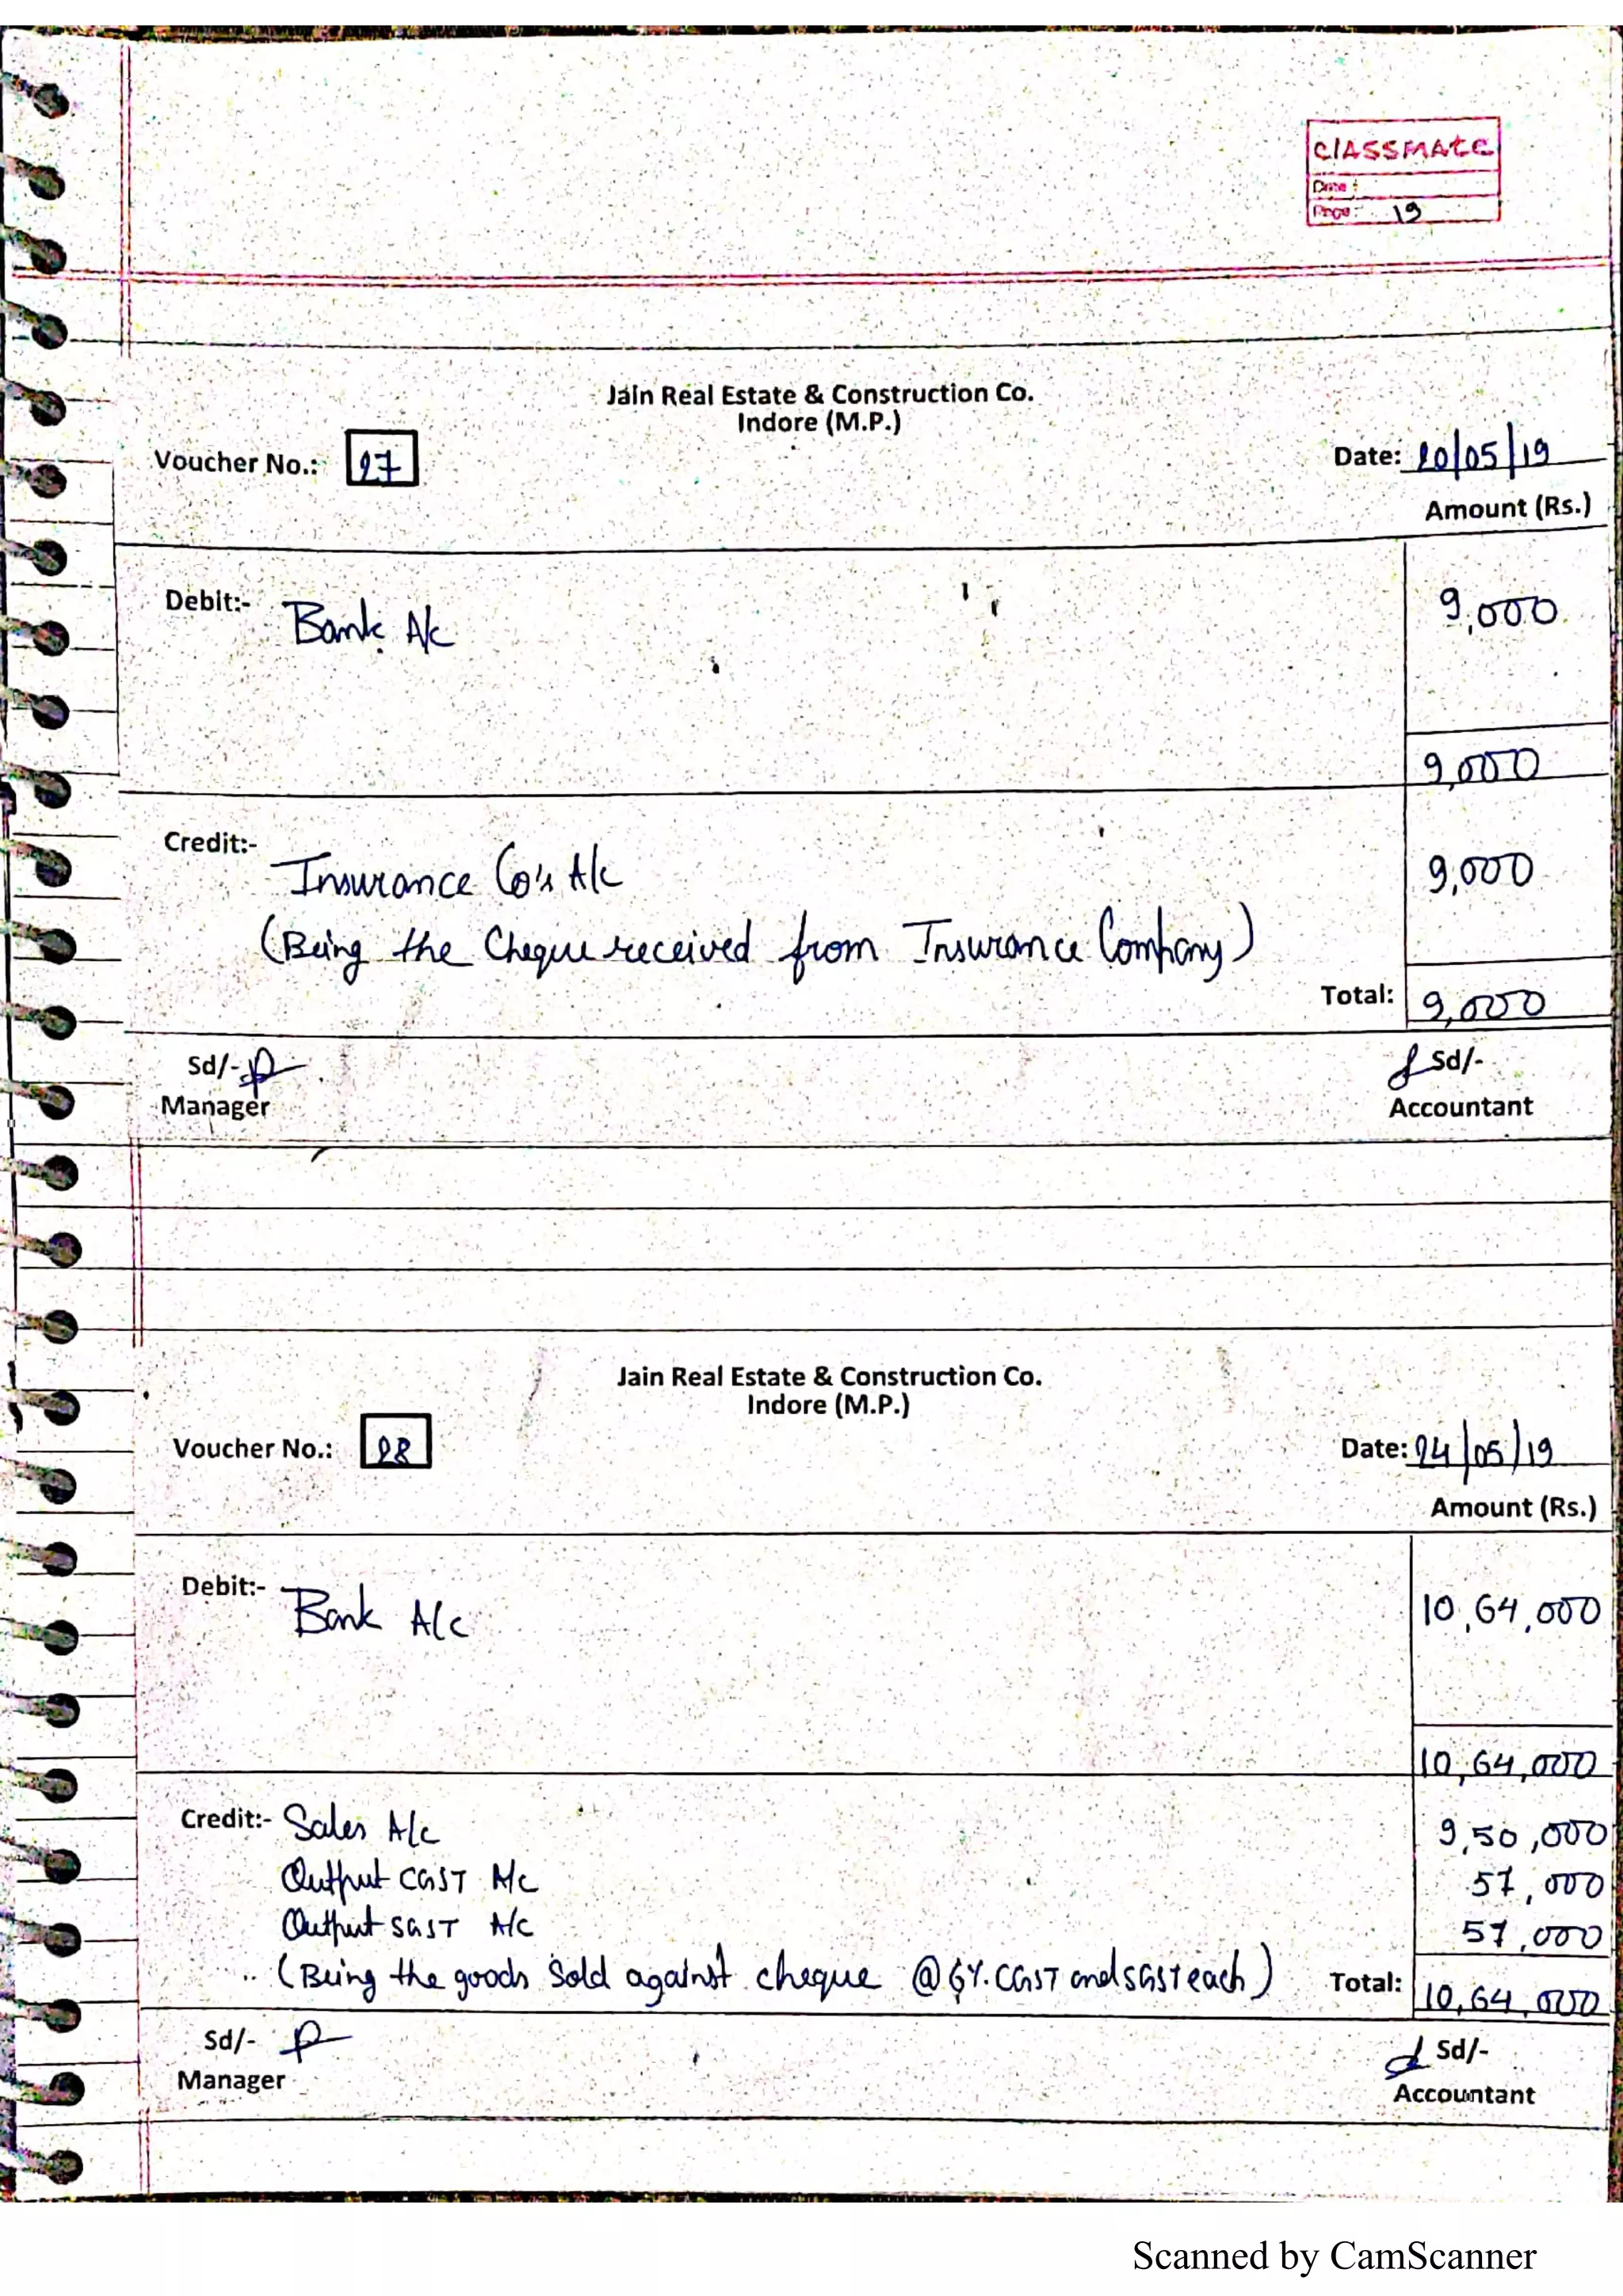 CLASSMATE
Date :
Page: 19
Jain Real Estate & Construction Co.
Indore (M.P.)
Voucher No.: 27
Date: 20/05/19
Amount (Rs.)
Debit:- Bank A/c 9,000
9,000
Credit:- Insurance Co's A/c 9,000
(Being the Cheque received from Insurance Company)
Total: 9,000
Sd/- Sd/-
Manager Accountant
Jain Real Estate & Construction Co.
Indore (M.P.)
Voucher No.: 28
Date: 24/05/19
Amount (Rs.)
Debit:- Bank A/c 10,64,000
10,64,000
Credit:- Sales A/c 9,50,000
Output CGST A/c 57,000
Output SGST A/c 57,000
(Being the goods Sold against cheque @ 6%. CGST and SGST each) Total: 10,64,000
Sd/- Sd/-
Manager Accountant
Scanned by CamScanner